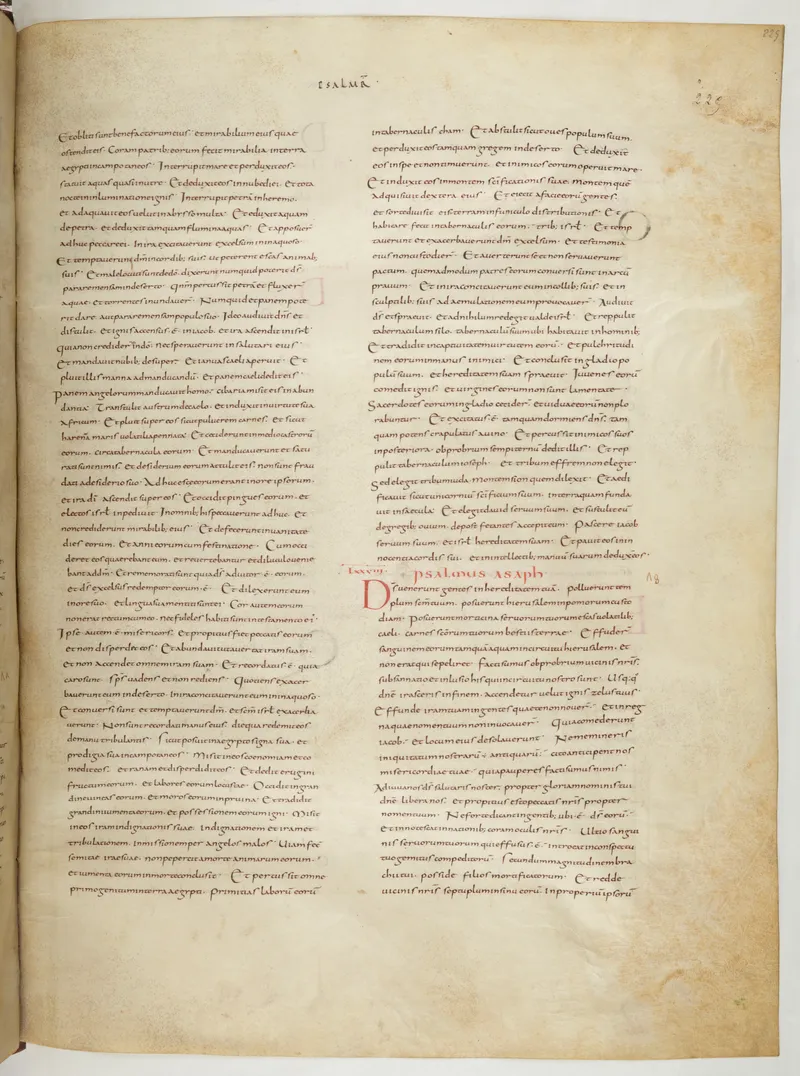 PSALMꝰ
229
Et obliti sunt benefactorum eius· et mirabilium eius quae
ostendit eis· Coram patrib; eorum fecit mirabilia· in terra
aegypti in campo taneos· Interrupit mare et perduxit eos·
statuit aquas quasi in utre· Et deduxit eos in nube diei· et tota
nocte in inluminatione ignis· Interrupit petrā in heremo·
et adaquauit eos uelut in abysso multa· Et eduxit aquam
de petra· et deduxit tamquam flumina aquas· Et apposuer̄
adhuc peccare ei· in ira excitauerunt excelsum in inaquoso·
Et temptauerunt dm̄ in cordib; suis· ut peterent escas animab;
suis· Et male locuti sunt de dō· dixerunt numquid poterit ds̄
parare mensam in deserto· Qnm̄ percussit petrā et fluxer̄
aquae· et torrentes inundauer̄· Numquid et panem pote
rit dare· aut parare mensam populo suo· Ideo audiuit dns̄ et
distulit· et ignis accensus ē· in iacob· et ira ascendit in isrl̄·
quia non crediderˉ in dō· nec sperauerunt in salutari eius·
Et mandauit nubib; desuper· Et ianuas caeli aperuit· Et
pluit illis manna ad manducandū· Et panem caeli dedit eis·
Panem angelorum manducauit homo· cibaria misit eis in abun
dantia· Transtulit austrum de caelo· et induxit in uirtute sua
africum· Et pluit super eos sicut puluerem carnes· Et sicut
harenā maris uolatilia pennata· Et ceciderunt in medio castrorū
eorum· circa tabernacula eorum· Et manducauerunt et satu
rati sunt nimis· et desiderium eorum attulit eis· non sunt frau
dati a desiderio suo· Adhuc escae eorum erant in ore ipsorum·
et ira dī· ascendit super eos· Et occidit pingues eorum· et
electos isrl̄· inpediuit· In omnib; his peccauerunt adhuc· et
non crediderunt mirabilib; eius· Et defecerunt in uanitate
dies eorum· et anni eorum cum festinatione· Cum occi
deret eos quaerebant eum· et reuertebantur et diluculo uenie
bant ad dm̄· Et rememorati sunt quia ds̄ adiutor ē· eorum·
et ds̄ excelsus redemptor eorum ē· Et dilexerunt eum
in ore suo· et lingua sua mentiti sunt ei· Cor autem eorum
non erat rectum cum eo· nec fideles habiti sunt in testamento eiꝰ·
Ipse autem ē misericors· et propitius fiet peccatis eorum
et non disperdet eos· Et abundauit ut auerteret iram suam·
et non accendet omnem iram suam· Et recordatus ē· quia
caro sunt· sps̄ uadens et non rediens· Quotiens exacer
bauerunt eum in deserto· In ira concitauerunt eum in inaquoso·
Et conuersi sunt· et temptauerunt dm̄· et scm̄ isrl̄ exacerba
uerunt· Non sunt recordati manus eius· die qua redemit eos
de manu tribulantis· Sicut posuit in aegypto signa sua· et
prodigia sua in campo taneos· Misit in eos coenomiam et co
medit eos· et ranam et disperdidit eos· Et dedit erugini
fructum eorum· et labores eorum locustae· Occidit in gran
dine uineas eorum· et moros eorum in pruina· Et tradidit
grandini iumenta eorum· et possessionem eorum igni· Misit
in eos iram indignationis suae· indignationem et iram et
tribulationem· inmissionem per angelos malos· Uiam fec̄
semitae irae suae· non pepercit a morte animarum eorum·
et iumenta eorum in morte conclusit· Et percussit omne
primogenitum in terra aegypti· primitias laborū eorū
in tabernaculis cham· Et abstulit sicut oues populum suum·
et perduxit eos tamquam gregem in deserto· Et deduxit
eos in spe et non timuerunt· et inimicos eorum operuit mare·
Et induxit eos in montem scīficationis suae· montem quē
adquisiuit dextera eius· Et eiecit a facie eorū gentes·
et sorte diuisit eis terram in funiculo distributionis· Et
habitare fecit in tabernaculis eorum· trib; isrl̄· Et temp
tauerunt et exacerbauerunt dm̄ excelsum· et testimonia
eius non custodierˉ· Et auerterunt se et non seruauerunt
pactum· quemadmodum patres eorum conuersi sunt in arcū
prauum· Et in ira concitauerunt eum in collib; suis· et in
sculptilib; suis ad aemulationem eum prouocauerˉ· Audiuit
ds̄ et spreuit· et ad nihilum redegit ualde isrl̄· Et reppulit
tabernaculum silo· tabernaculū suum ubi habitauit in hominib;
Et tradidit in captiuitatem uirtutem eorū· Et pulchritudi
nem eorum in manus inimici· Et conclusit in gladio po
pulū suum· et hereditatem suam spreuit· Iuuenes eorū
comedit ignis· et uirgines eorum non sunt lamentatae·
Sacerdotes eorum in gladio cecider̄· et uiduae eorū non plo
rabuntur· Et excitatus ē· tamquam dormiens dns̄· tam
quam potens crapulatus a uino· Et percussit inimicos suos
in posteriora· obprobrium sempiternū dedit illis· Et rep
pulit tabernaculum ioseph· et tribum effrem non elegit·
Sed elegit tribum iuda· montem sion quem dilexit· Et aedi
ficauit sicut unicornuū scīficium suum· in terra quam funda
uit in saecula· Et elegit dauid seruum suum· et sustulit eū
de gregib; ouium· de post fetantes accepit eum· Pascere iacob
seruum suum· et isrl̄· hereditatem suam· Et pauit eos in in
nocentia cordis sui· et in intellectib; manuū suarum deduxit eos·
LXXVIII· PSALMUS ASAPH
Ds̄ uenerunt gentes in hereditatem tuā· polluerunt tem
plum scm̄ tuum· posuerunt hierusalem in pomorum custo
diam· Posuerunt morticina seruorum tuorum escas uolatilib;
caeli· carnes scōrum tuorum bestiis terrae· Effuderˉ
sanguinem eorum tamquā aquam in circuitu hierusalem· et
non erat qui sepeliret· Facti sumus obprobrium uicinis nrīs·
subsannatio et inlusio his qui in circuitu nostro sunt· Usq;quo
dnē irasceris in finem· accendetur uelut ignis zelus tuus·
Effunde iram tuam in gentes quae te non nouerˉ· et in reg
na quae nomen tuum non inuocauerˉ· Quia comederunt
iacob· et locum eius desolauerunt· Ne memineris
iniquitatum nostrarū antiquarū· cito anticipent nos
misericordiae tuae· quia pauperes facti sumus nimis·
Adiuua nos ds̄ salutaris noster· propter gloriam nominis tui
dnē libera nos· et propitius esto peccatis nrīs propter
nomen tuum· Ne forte dicant in gentib; ubi ē· ds̄ eorū·
et innotescat in nationib; coram oculis nrīs· Ultio sangui
nis seruorum tuorum qui effusus ē· introeat in conspectu
tuo gemitus compeditorū· Secundum magnitudinem bra
chii tui· posside filios mortificatorum· Et redde
uicinis nrīs septuplum in sinu eorū· inproperiū ipsorū